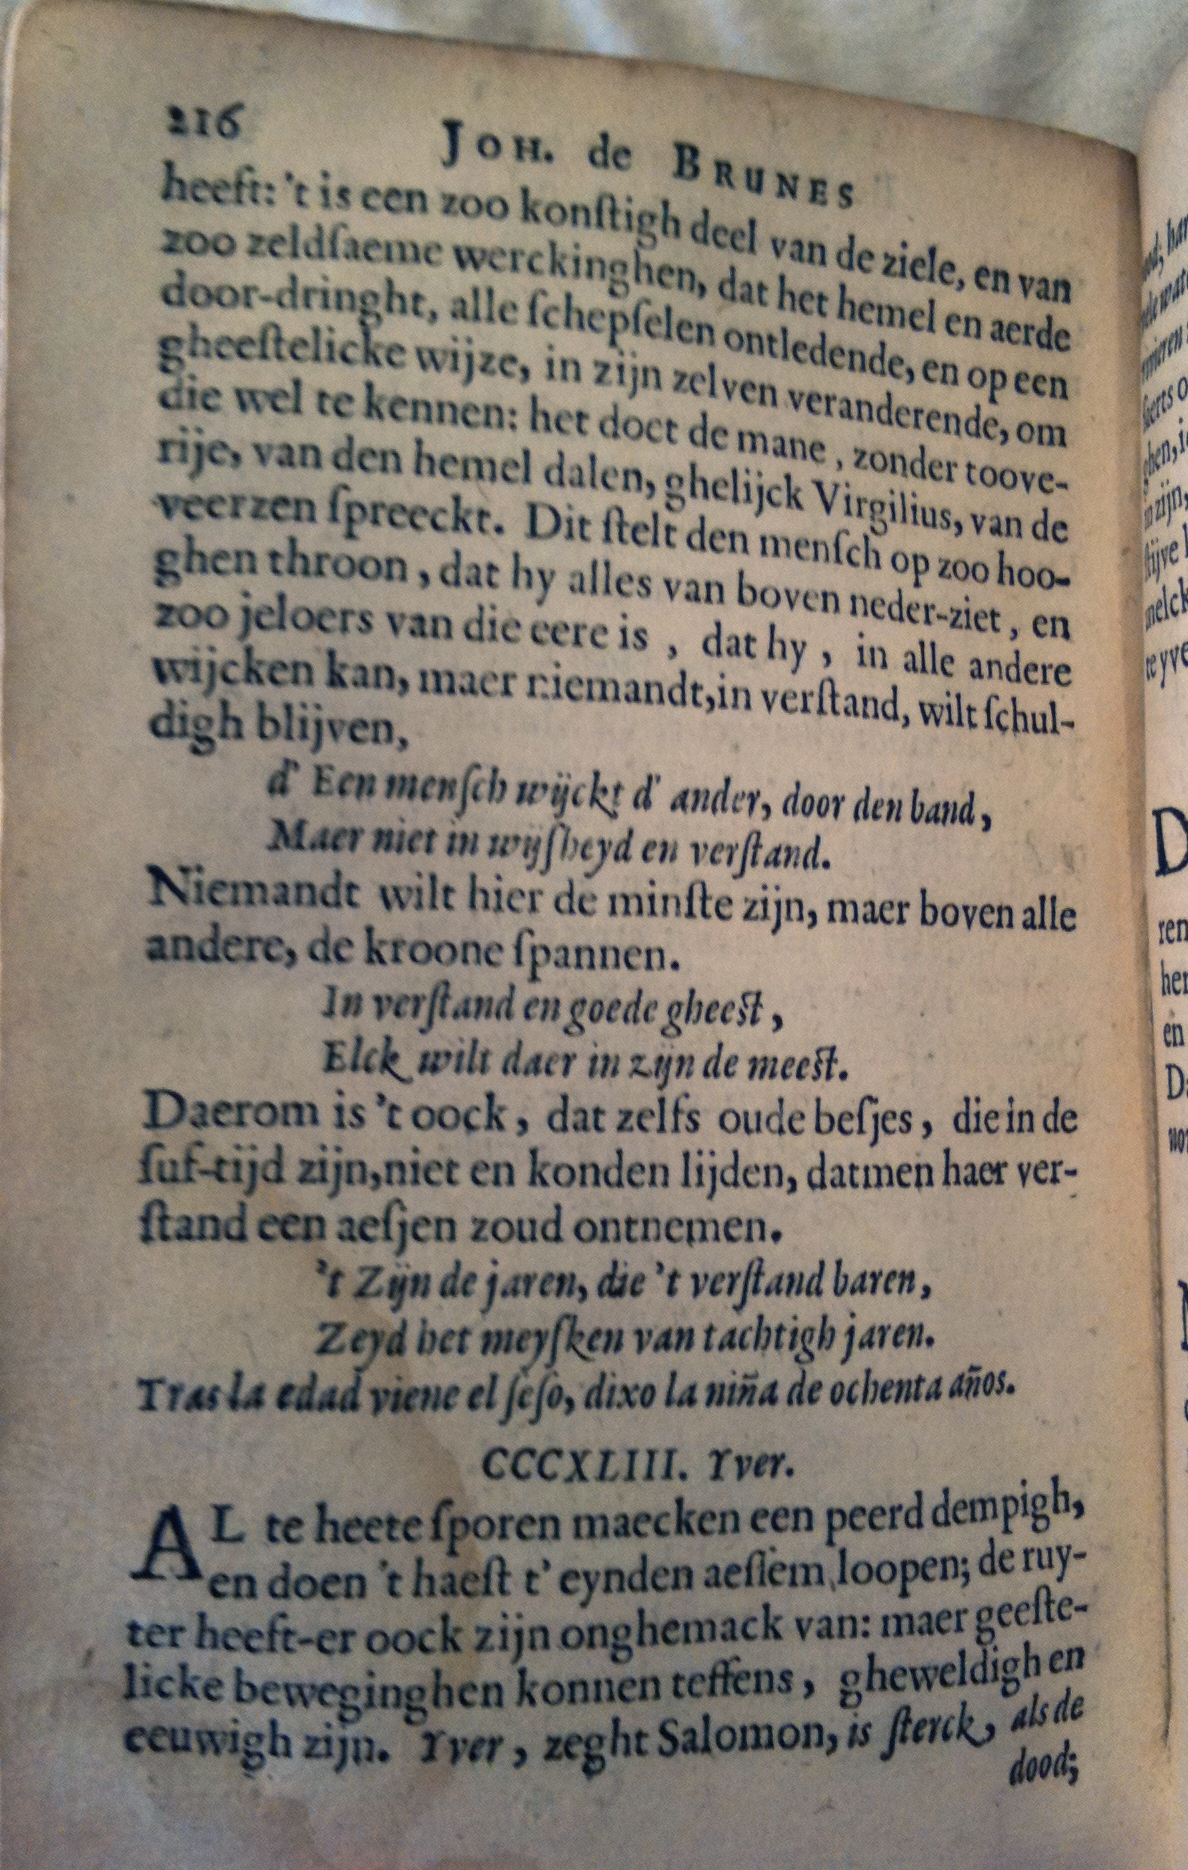 216
JOH. de BRUNES
heeft: 't is een zoo konſtigh deel van de ziele, en van
zoo zeldſaeme werckinghen, dat het hemel en aerde
door-dringht, alle ſchepſelen ontledende, en op een
gheeſtelicke wijze, in zijn zelven veranderende, om
die wel te kennen: het doet de mane, zonder toove-
rije, van den hemel dalen, ghelijck Virgilius, van de
veerzen ſpreeckt. Dit ſtelt den menſch op zoo hoo-
ghen throon, dat hy alles van boven neder-ziet, en
zoo jeloers van die eere is, dat hy, in alle andere
wijcken kan, maer niemandt, in verſtand, wilt ſchul-
digh blijven,
d' Een menſch wijckt d' ander, door den band,
Maer niet in wijſheyd en verſtand.
Niemandt wilt hier de minſte zijn, maer boven alle
andere, de kroone ſpannen.
In verſtand en goede gheeſt,
Elck wilt daer in zijn de meeſt.
Daerom is 't oock, dat zelfs oude beſjes, die in de
ſuf-tijd zijn, niet en konden lijden, datmen haer ver-
ſtand een aeſjen zoud ontnemen.
't Zijn de jaren, die 't verſtand baren,
Zeyd het meyſken van tachtigh jaren.
Tras la edad viene el ſeſo, dixo la niña de ochenta años.
CCCXLIII. Yver.
AL te heete ſporen maecken een peerd dempigh,
en doen 't haeſt t' eynden aeſiem loopen; de ruy-
ter heeft-er oock zijn onghemack van: maer geeſte-
licke beweginghen konnen teffens, gheweldigh en
eeuwigh zijn. Yver, zeght Salomon, is ſterck, als de
dood;